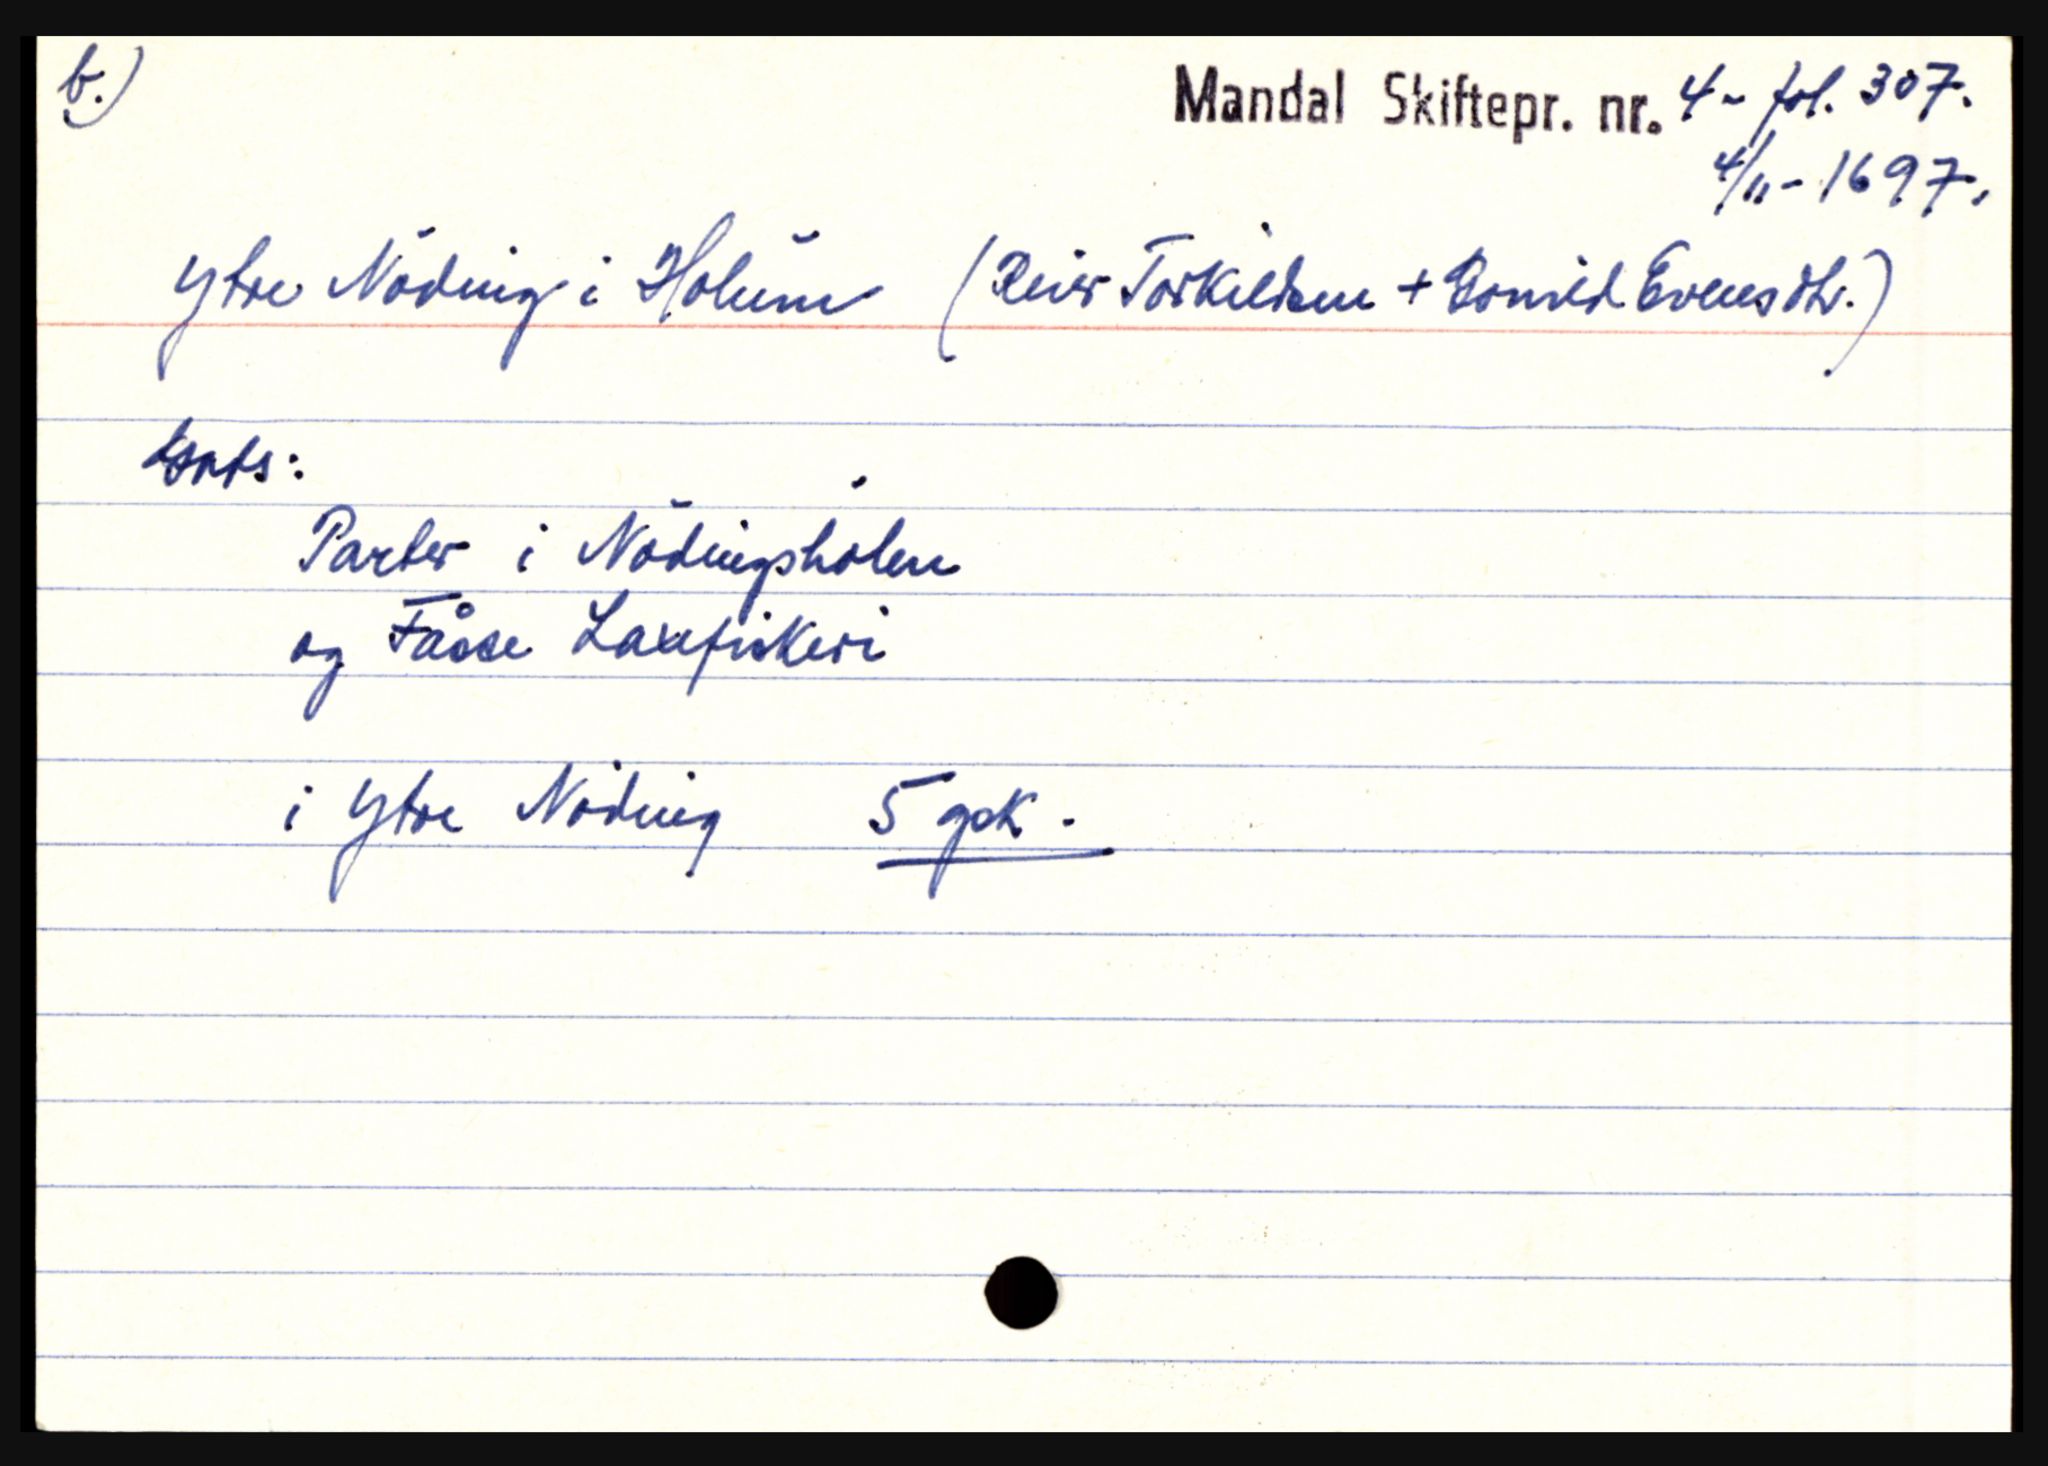 b.)
Mandal Skiftepr. nr. 4 - fol. 307.
4/11 - 1697.
Ytre Nöding i Holum (Reier Torkildsen + Gonvld Evensdtr.)
Parter i Nödingshölen
og Fåsse Laxefiskeri
i Ytre Nöding 5 gsk.